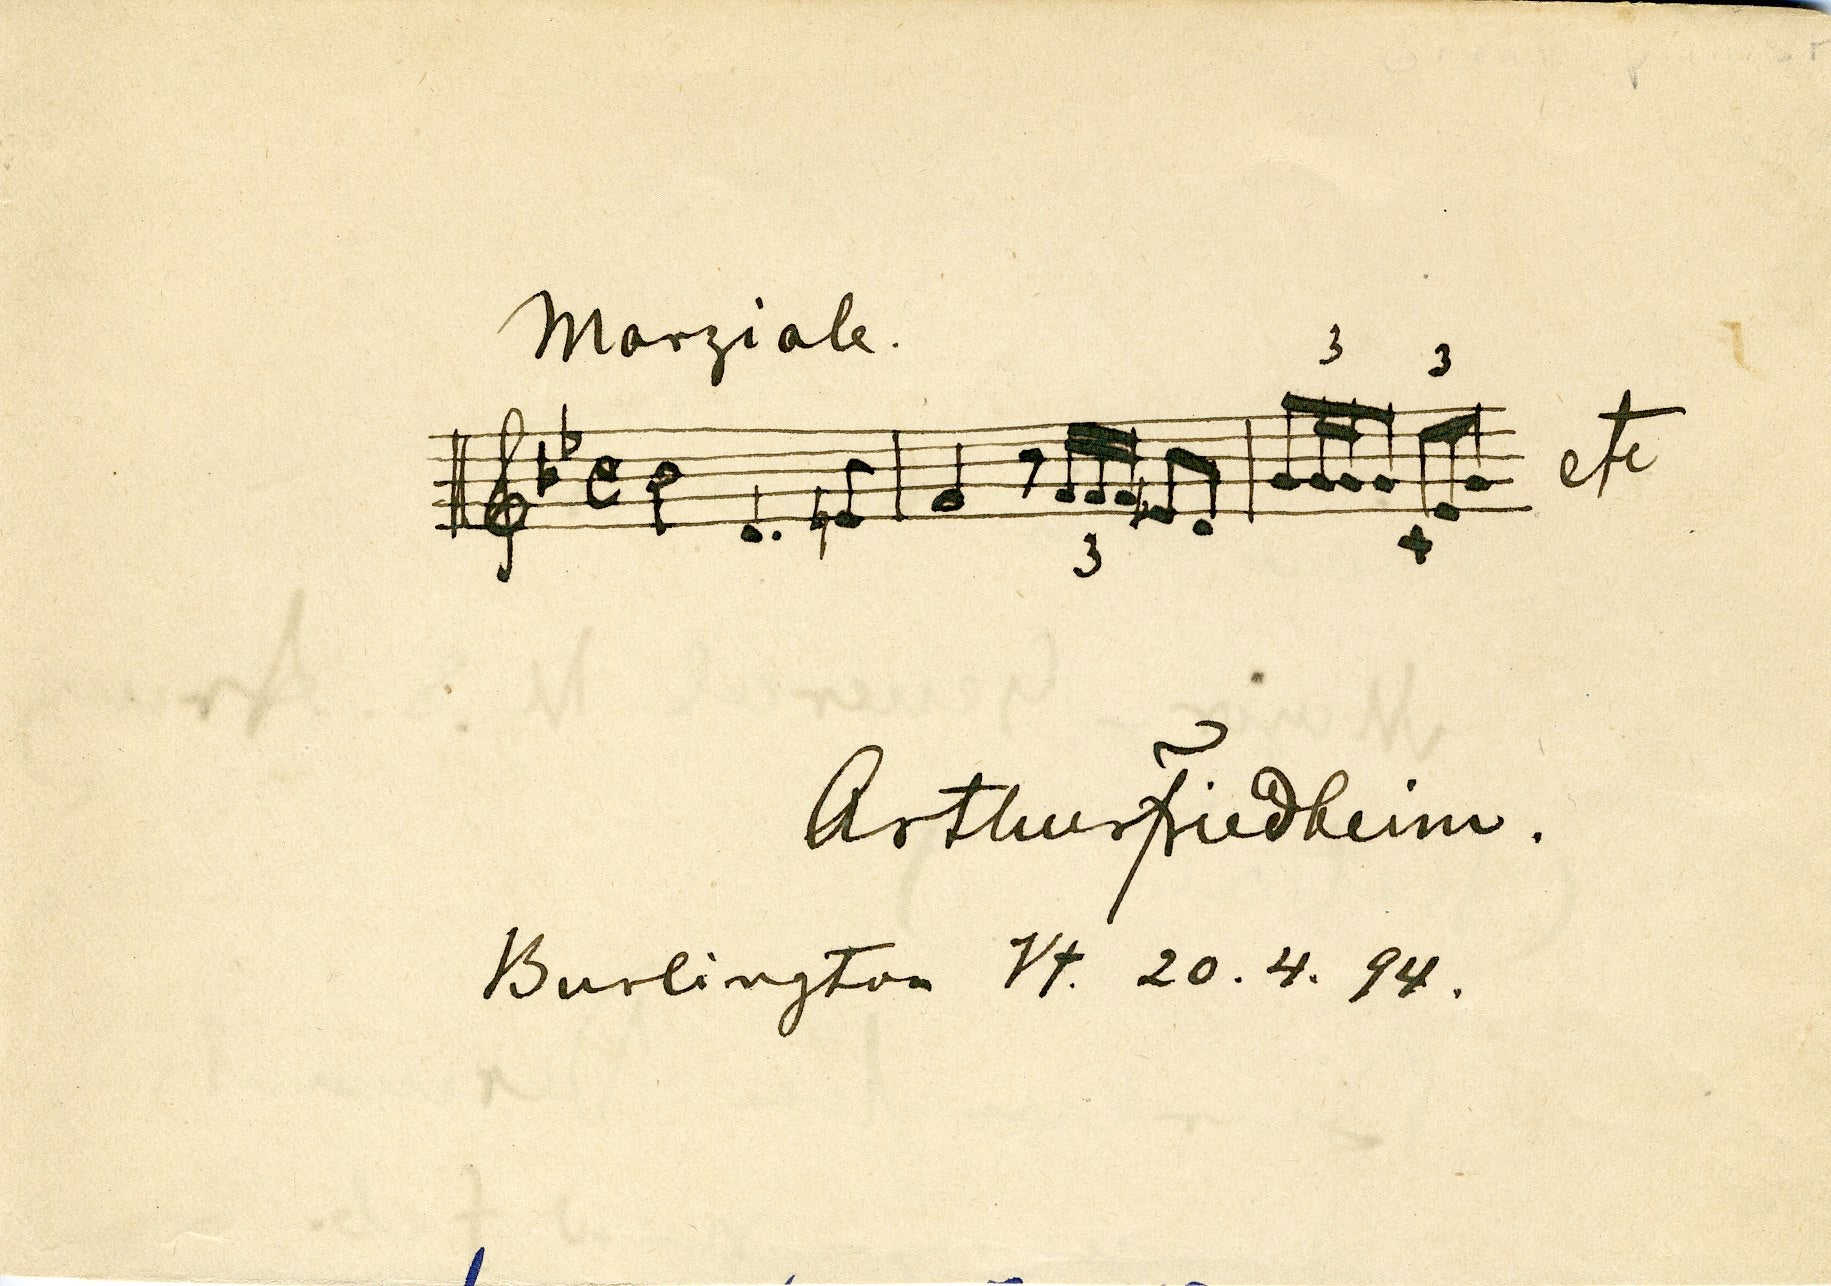 Marziale.
3 3
etc
3
Arthur Friedheim.
Burlington Vt. 20. 4. 94.